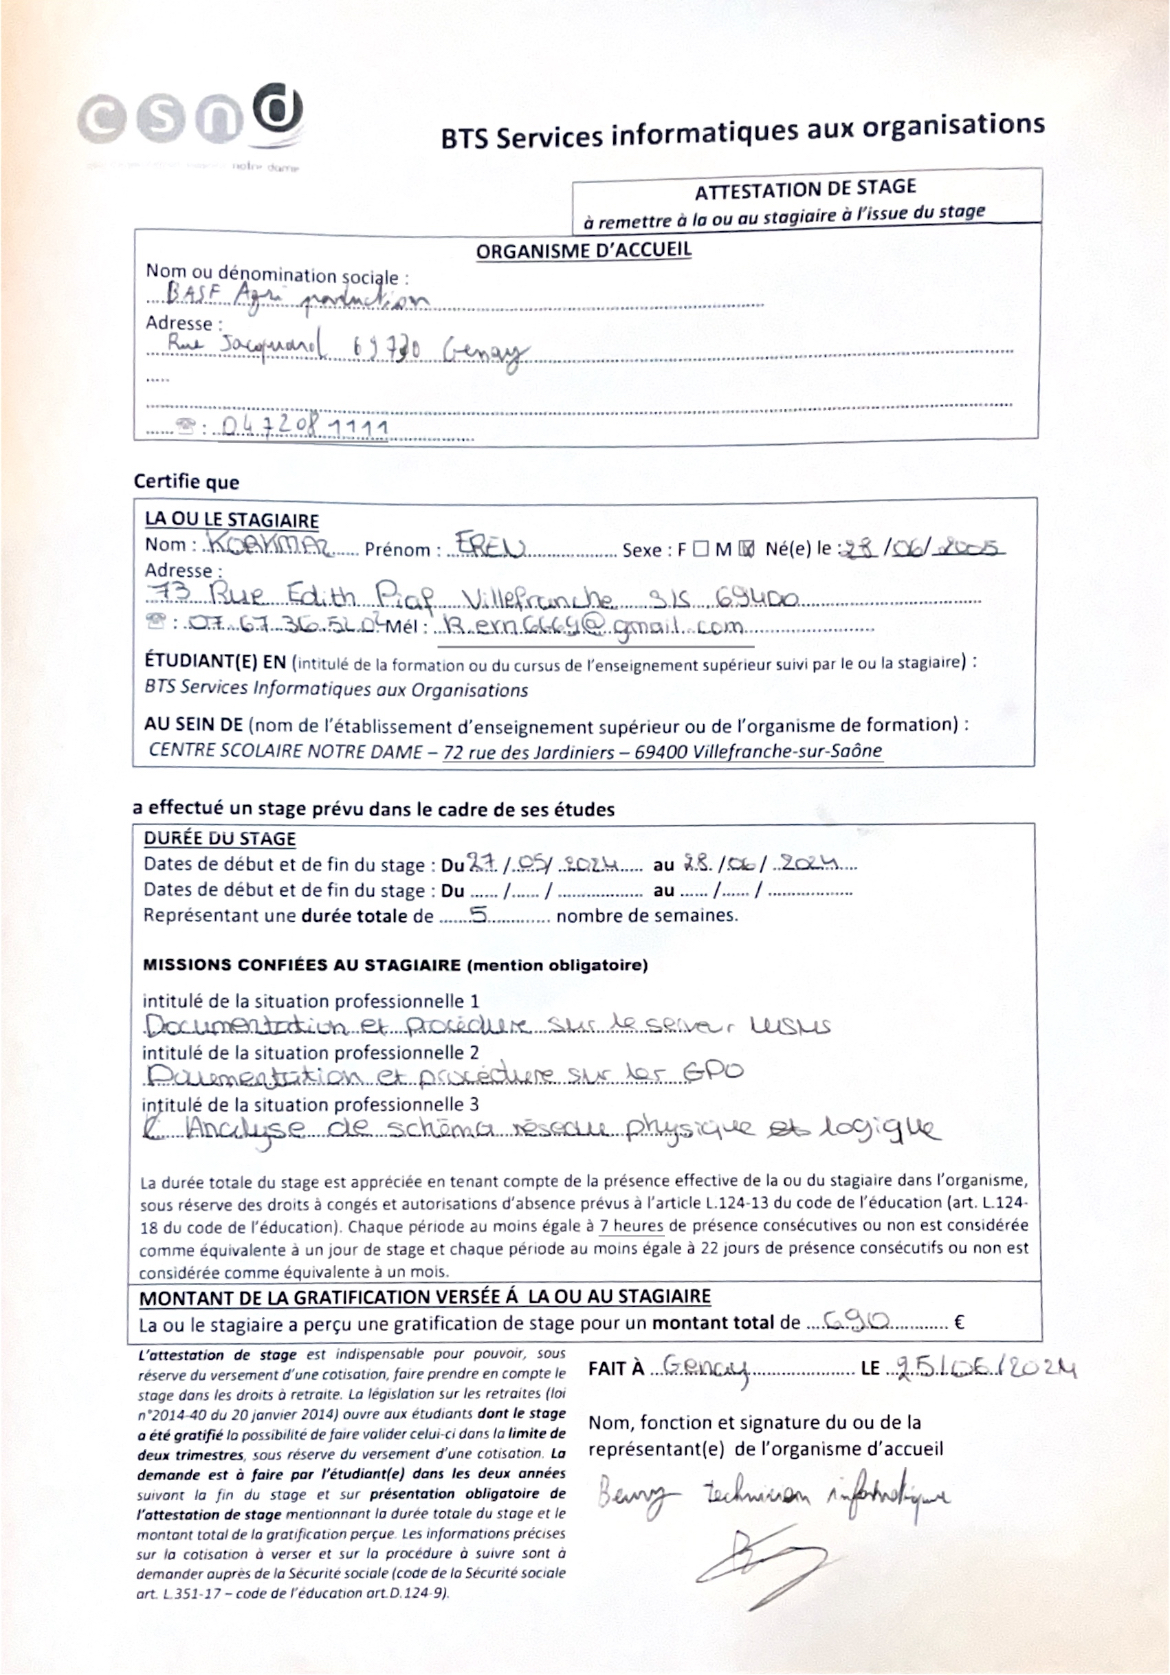 csnd
notre dame
BTS Services informatiques aux organisations
ATTESTATION DE STAGE
à remettre à la ou au stagiaire à l'issue du stage
ORGANISME D'ACCUEIL
Nom ou dénomination sociale :
BASF Agri production
Adresse :
Rue Jacquard 69730 Genay
☎ : 0472081111
Certifie que
LA OU LE STAGIAIRE
Nom : KORKMAZ Prénom : EREN Sexe : F ☐ M ☒ Né(e) le : 28/06/2005
Adresse :
73 Rue Edith Piaf Villefranche S/S 69400
☎ : 07 67 36 52 02 Mél : @gmail.com
ÉTUDIANT(E) EN (intitulé de la formation ou du cursus de l'enseignement supérieur suivi par le ou la stagiaire) :
BTS Services Informatiques aux Organisations
AU SEIN DE (nom de l'établissement d'enseignement supérieur ou de l'organisme de formation) :
CENTRE SCOLAIRE NOTRE DAME – 72 rue des Jardiniers – 69400 Villefranche-sur-Saône
a effectué un stage prévu dans le cadre de ses études
DURÉE DU STAGE
Dates de début et de fin du stage : Du 27/05/2024 au 28/06/2024
Dates de début et de fin du stage : Du ....../....../.................. au ....../....../..................
Représentant une durée totale de 5 nombre de semaines.
MISSIONS CONFIÉES AU STAGIAIRE (mention obligatoire)
intitulé de la situation professionnelle 1
Documentation et procédure sur le serveur WSUS
intitulé de la situation professionnelle 2
Documentation et procédure sur les GPO
intitulé de la situation professionnelle 3
Analyse de schéma réseau physique et logique
La durée totale du stage est appréciée en tenant compte de la présence effective de la ou du stagiaire dans l'organisme,
sous réserve des droits à congés et autorisations d'absence prévus à l'article L.124-13 du code de l'éducation (art. L.124-
18 du code de l'éducation). Chaque période au moins égale à 7 heures de présence consécutives ou non est considérée
comme équivalente à un jour de stage et chaque période au moins égale à 22 jours de présence consécutifs ou non est
considérée comme équivalente à un mois.
MONTANT DE LA GRATIFICATION VERSÉE Á LA OU AU STAGIAIRE
La ou le stagiaire a perçu une gratification de stage pour un montant total de 690 €
L'attestation de stage est indispensable pour pouvoir, sous
réserve du versement d'une cotisation, faire prendre en compte le
stage dans les droits à retraite. La législation sur les retraites (loi
n°2014-40 du 20 janvier 2014) ouvre aux étudiants dont le stage
a été gratifié la possibilité de faire valider celui-ci dans la limite de
deux trimestres, sous réserve du versement d'une cotisation. La
demande est à faire par l'étudiant(e) dans les deux années
suivant la fin du stage et sur présentation obligatoire de
l'attestation de stage mentionnant la durée totale du stage et le
montant total de la gratification perçue. Les informations précises
sur la cotisation à verser et sur la procédure à suivre sont à
demander auprès de la Sécurité sociale (code de la Sécurité sociale
art. L.351-17 – code de l'éducation art.D.124-9).
FAIT À Genay LE 25/06/2024
Nom, fonction et signature du ou de la
représentant(e) de l'organisme d'accueil
technicien informatique